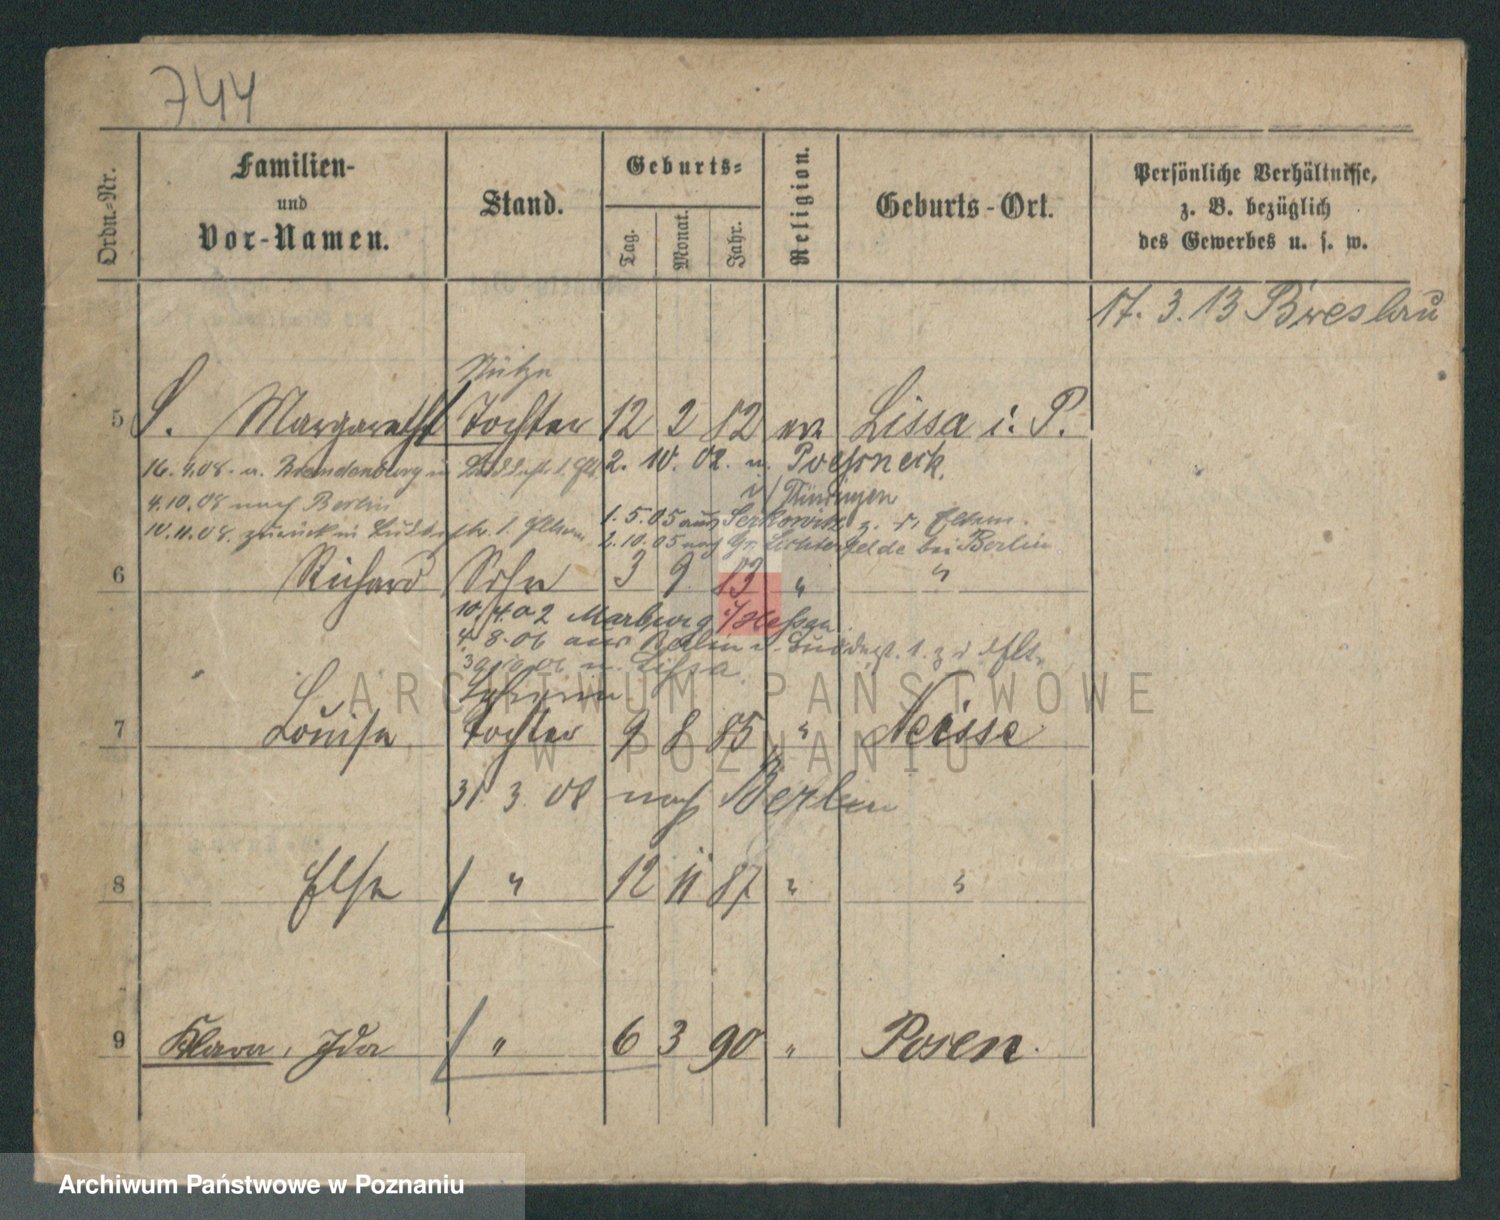 744
Ordn.-Nr.
Familien-
und
Vor-Namen.
Stand.
Geburts-
Tag.
Monat.
Jahr.
Religion.
Geburts-Ort.
Persönliche Verhältnisse,
z. B. bezüglich
des Gewerbes u. s. w.
17. 3. 13 Breslau
Stütze
5 S. Margarethe Tochter 12 2 82 ev. Lissa i. P.
16. 4. 08. n. Brandenburg 2. 10. 02. n. Poessneck
i/ Thüringen
4. 10. 08 nach Berlin
1. 5. 05 aus Serkowitz z. d. Eltern.
10. 11. 08. zurück 1. Eltern
2. 10. 05 nach Gr. Lichterfelde bei Berlin
6 Richard Sohn 3 9 83 " "
10. 4. 02 Marburg i/Hessen
4. 8. 06 aus Berlin
06 n. Lissa.
7 Louise Tochter 9 8 85 " Neisse
31. 3. 08 nach Berlin
8 Else " 12 11 87 " "
9 Klara, Ida " 6 3 90 " Posen.
ARCHIWUM PAŃSTWOWE
W POZNANIU
Archiwum Państwowe w Poznaniu